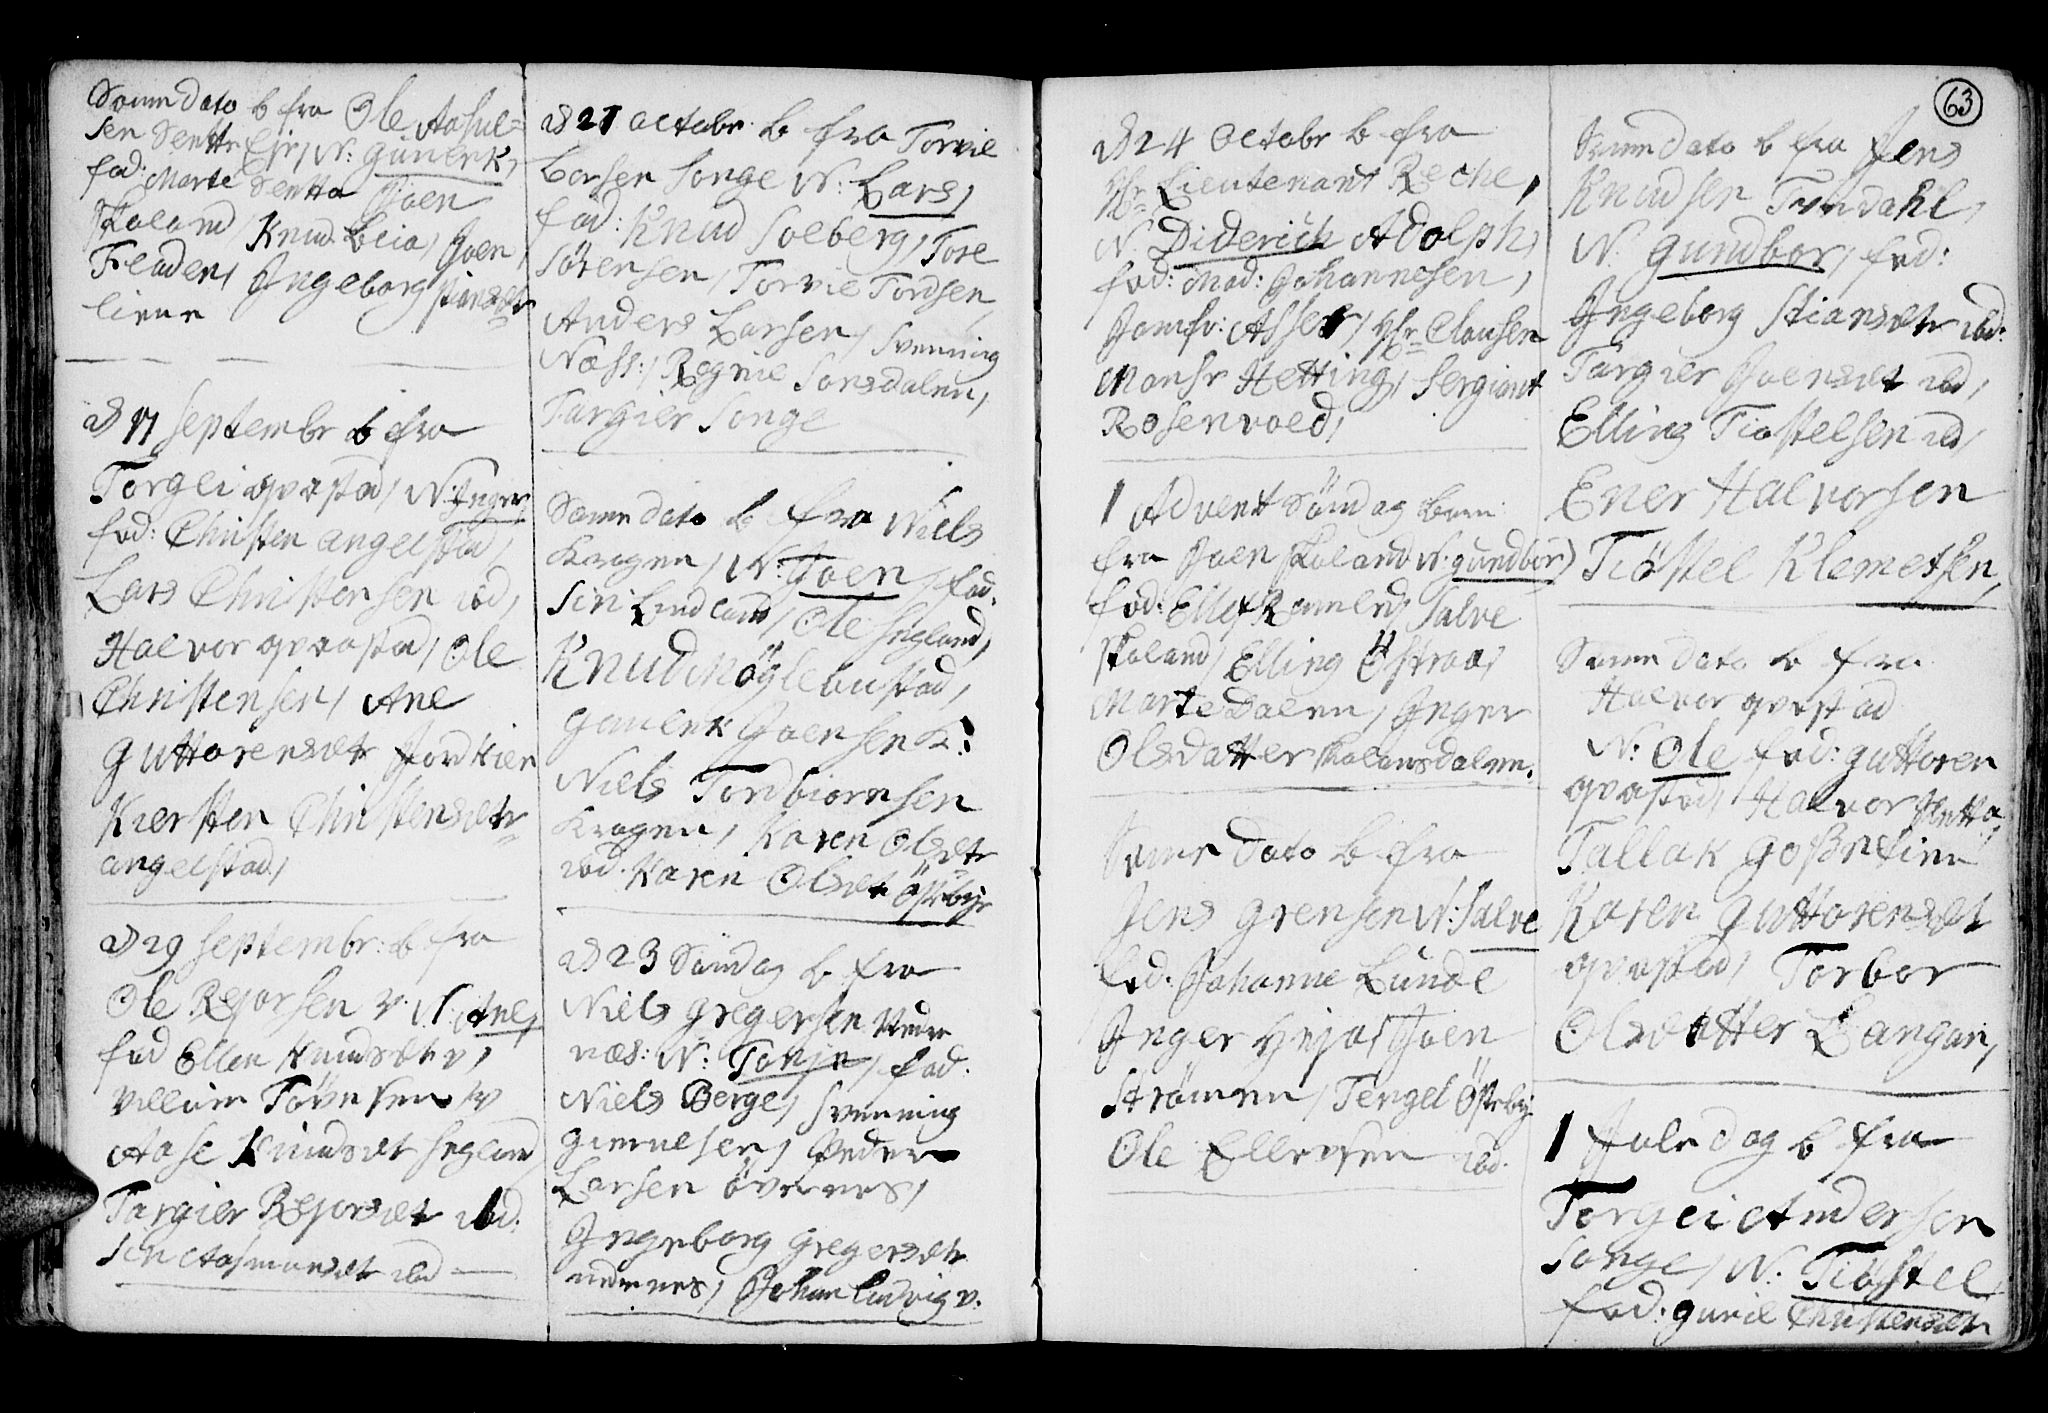 Samme Dato b fra Ole Aasul=
sen N: Gunerk,
fad: Marte Joen
Skaland, Knud Leia, Joen
Jngeborg
liene
d 17 septembr b fra
Torglei qvastad, N: Jnger,
fad: Christen angelstad,
Lars Christensen ibd,
Halvor qvastad, Ole
Christensen, Ane
guttorensdtr
Kiersten Christensdtr
angelstad,
d 29 septembr: b fra
Ole Rejorsen v. N: Ane,
fad Ellen Knudsdtr v,
Villum v
Aase Knudsdtr segland
Targier Rejorsdtr ibd.
Siri Aasmundsdtr ibd
d 21 octobr b fra Torvie
Larsen Songe N: Lars,
fad: Knud Solberg, Tore
Sörensen, Torvie Tordsen,
Anders Larsen, Svenning
Næss:, Regnie Sonsdalen,
Targier Songe
Samme Dato b fra Niels
Kragen, N: Joen, fad.
Siri Lindland, Ole Segland,
Knud Möglebustad,
gunerk Joensen K:
Niels Tordbiornsen
Kragen, Karen Olsdtr
ibd. Karen Olsdtr Östebye
d 23 Söndag b fra
Niels gregersen Nede
næs: N: Tonje, fad.
Niels Berge, Svenning
Peder
Larsen övernes,
Jngeborg gregersdtr
nedenes, Johan Ludvig v.
63
d 24 Octobr b fra
Hr Lieutenant Reche,
N. Diderich Adolph,
fad: Mad: Johannesen,
Jomfr: Asser, Hr Clausen
Monsr Hetting, Sergiant
Rosenvoed,
1 Advent Söndag barn
fra Joen Skaland N: gundbor,
fad: Ellef Ramled, Talve
Skaland, Elling Östraa,
Marte Dalen, Jnger
Olsdatter Skalansdalen.
Samme Dato b fra
Jens grensen N: Salve
fad: Johanne Lunde
Jnger Joen
Strömmen, Tengel Östeby
Ole Ellevsen ibd.
Samme Dato b fra Jens
Knudsen Tvedahl,
N: gundbor, fad:
Jngeborg Stiansdtr ibd:
Targier Joensdtr ibd,
Elling Tiostelsen ibd,
Ener Halvorsen
Tiöstel Klemetsen,
Samme Dato b fra
Halvor qvastad
N: Ole fad: guttoren
qvastad, Halvor
Tallak
Karen guttorensdtr
qvastad, Torbor
Olsdatter Langan,
1 Juledag b fra
Torglei Andersen
Songe, N: Tiöstel
fad: gunil Christensdtr